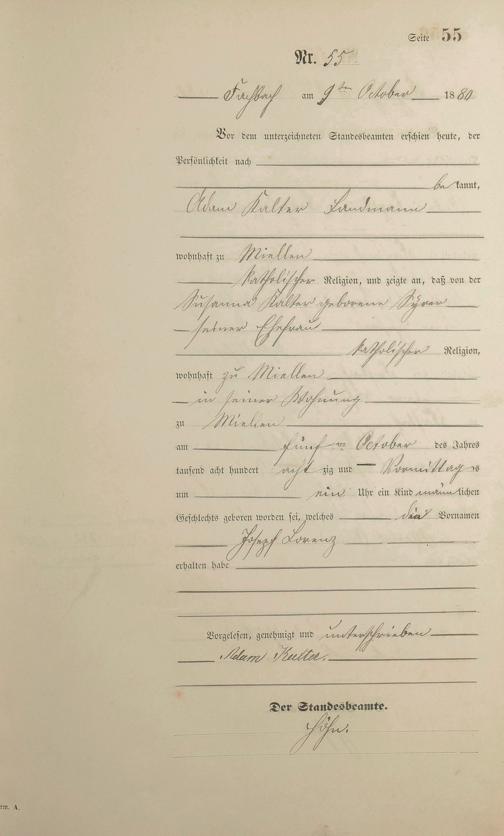 Seite 55
Nr. 55
Fachbach am 9ten October 1880
Vor dem unterzeichneten Standesbeamten erschien heute, der
Persönlichkeit nach
bekannt,
Adam Kalter Landmann
wohnhaft zu Miellen
katholischer Religion, und zeigte an, daß von der
Susanna Kalter geborene
seiner Ehefrau
katholischer Religion,
wohnhaft zu Miellen
in seiner Wohnung
zu Miellen
am fünften October des Jahres
tausend acht hundert achtzig und — Vormittags
um ein Uhr ein Kind männlichen
Geschlechts geboren worden sei, welches die Vornamen
Joseph Lorenz
erhalten habe
Vorgelesen, genehmigt und unterschrieben
Adam Kalter.
Der Standesbeamte.
Höhn.
rm. A.